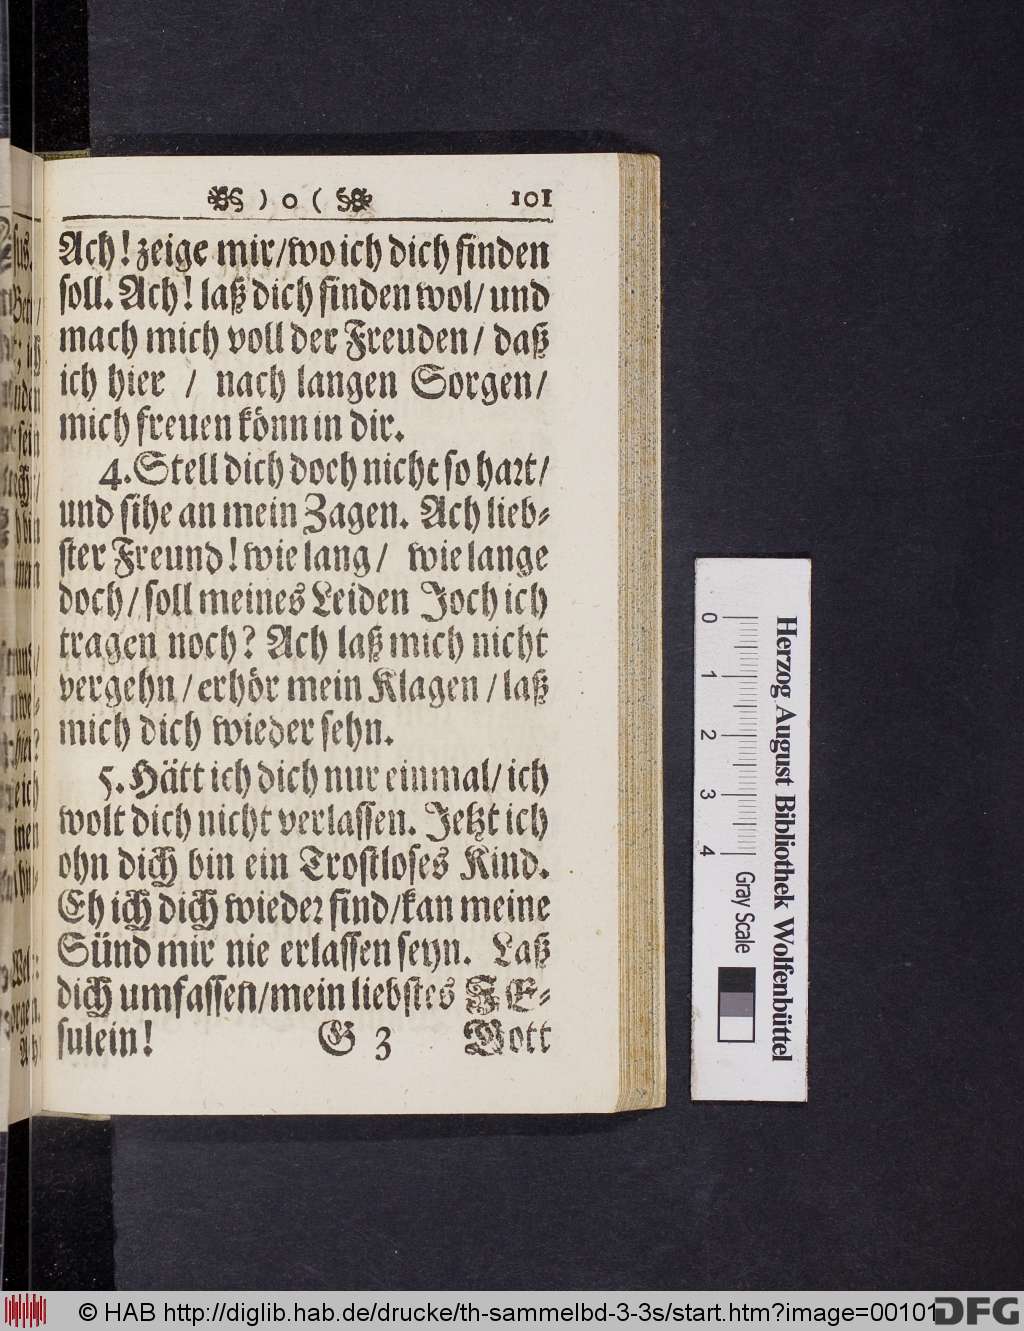 ) o ( 101
Ach! zeige mir/ wo ich dich finden
soll. Ach! laß dich finden wol/ und
mach mich voll der Freuden/ daß
ich hier / nach langen Sorgen/
mich freuen könn in dir.
4. Stell dich doch nicht so hart/
und sihe an mein Zagen. Ach lieb-
ster Freund! wie lang/ wie lange
doch/ soll meines Leiden Joch ich
tragen noch? Ach laß mich nicht
vergehn/ erhör mein Klagen/ laß
mich dich wieder sehn.
5. Hätt ich dich nur einmal/ ich
wolt dich nicht verlassen. Jetzt ich
ohn dich bin ein Trostloses Kind.
Eh ich dich wieder find/ kan meine
Sünd mir nie erlassen seyn. Laß
dich umfassen/ mein liebstes JE-
sulein! G 3 Gott
Herzog August Bibliothek Wolfenbüttel
0 1 2 3 4 Gray Scale
© HAB http://diglib.hab.de/drucke/th-sammelbd-3-3s/start.htm?image=00101
DFG